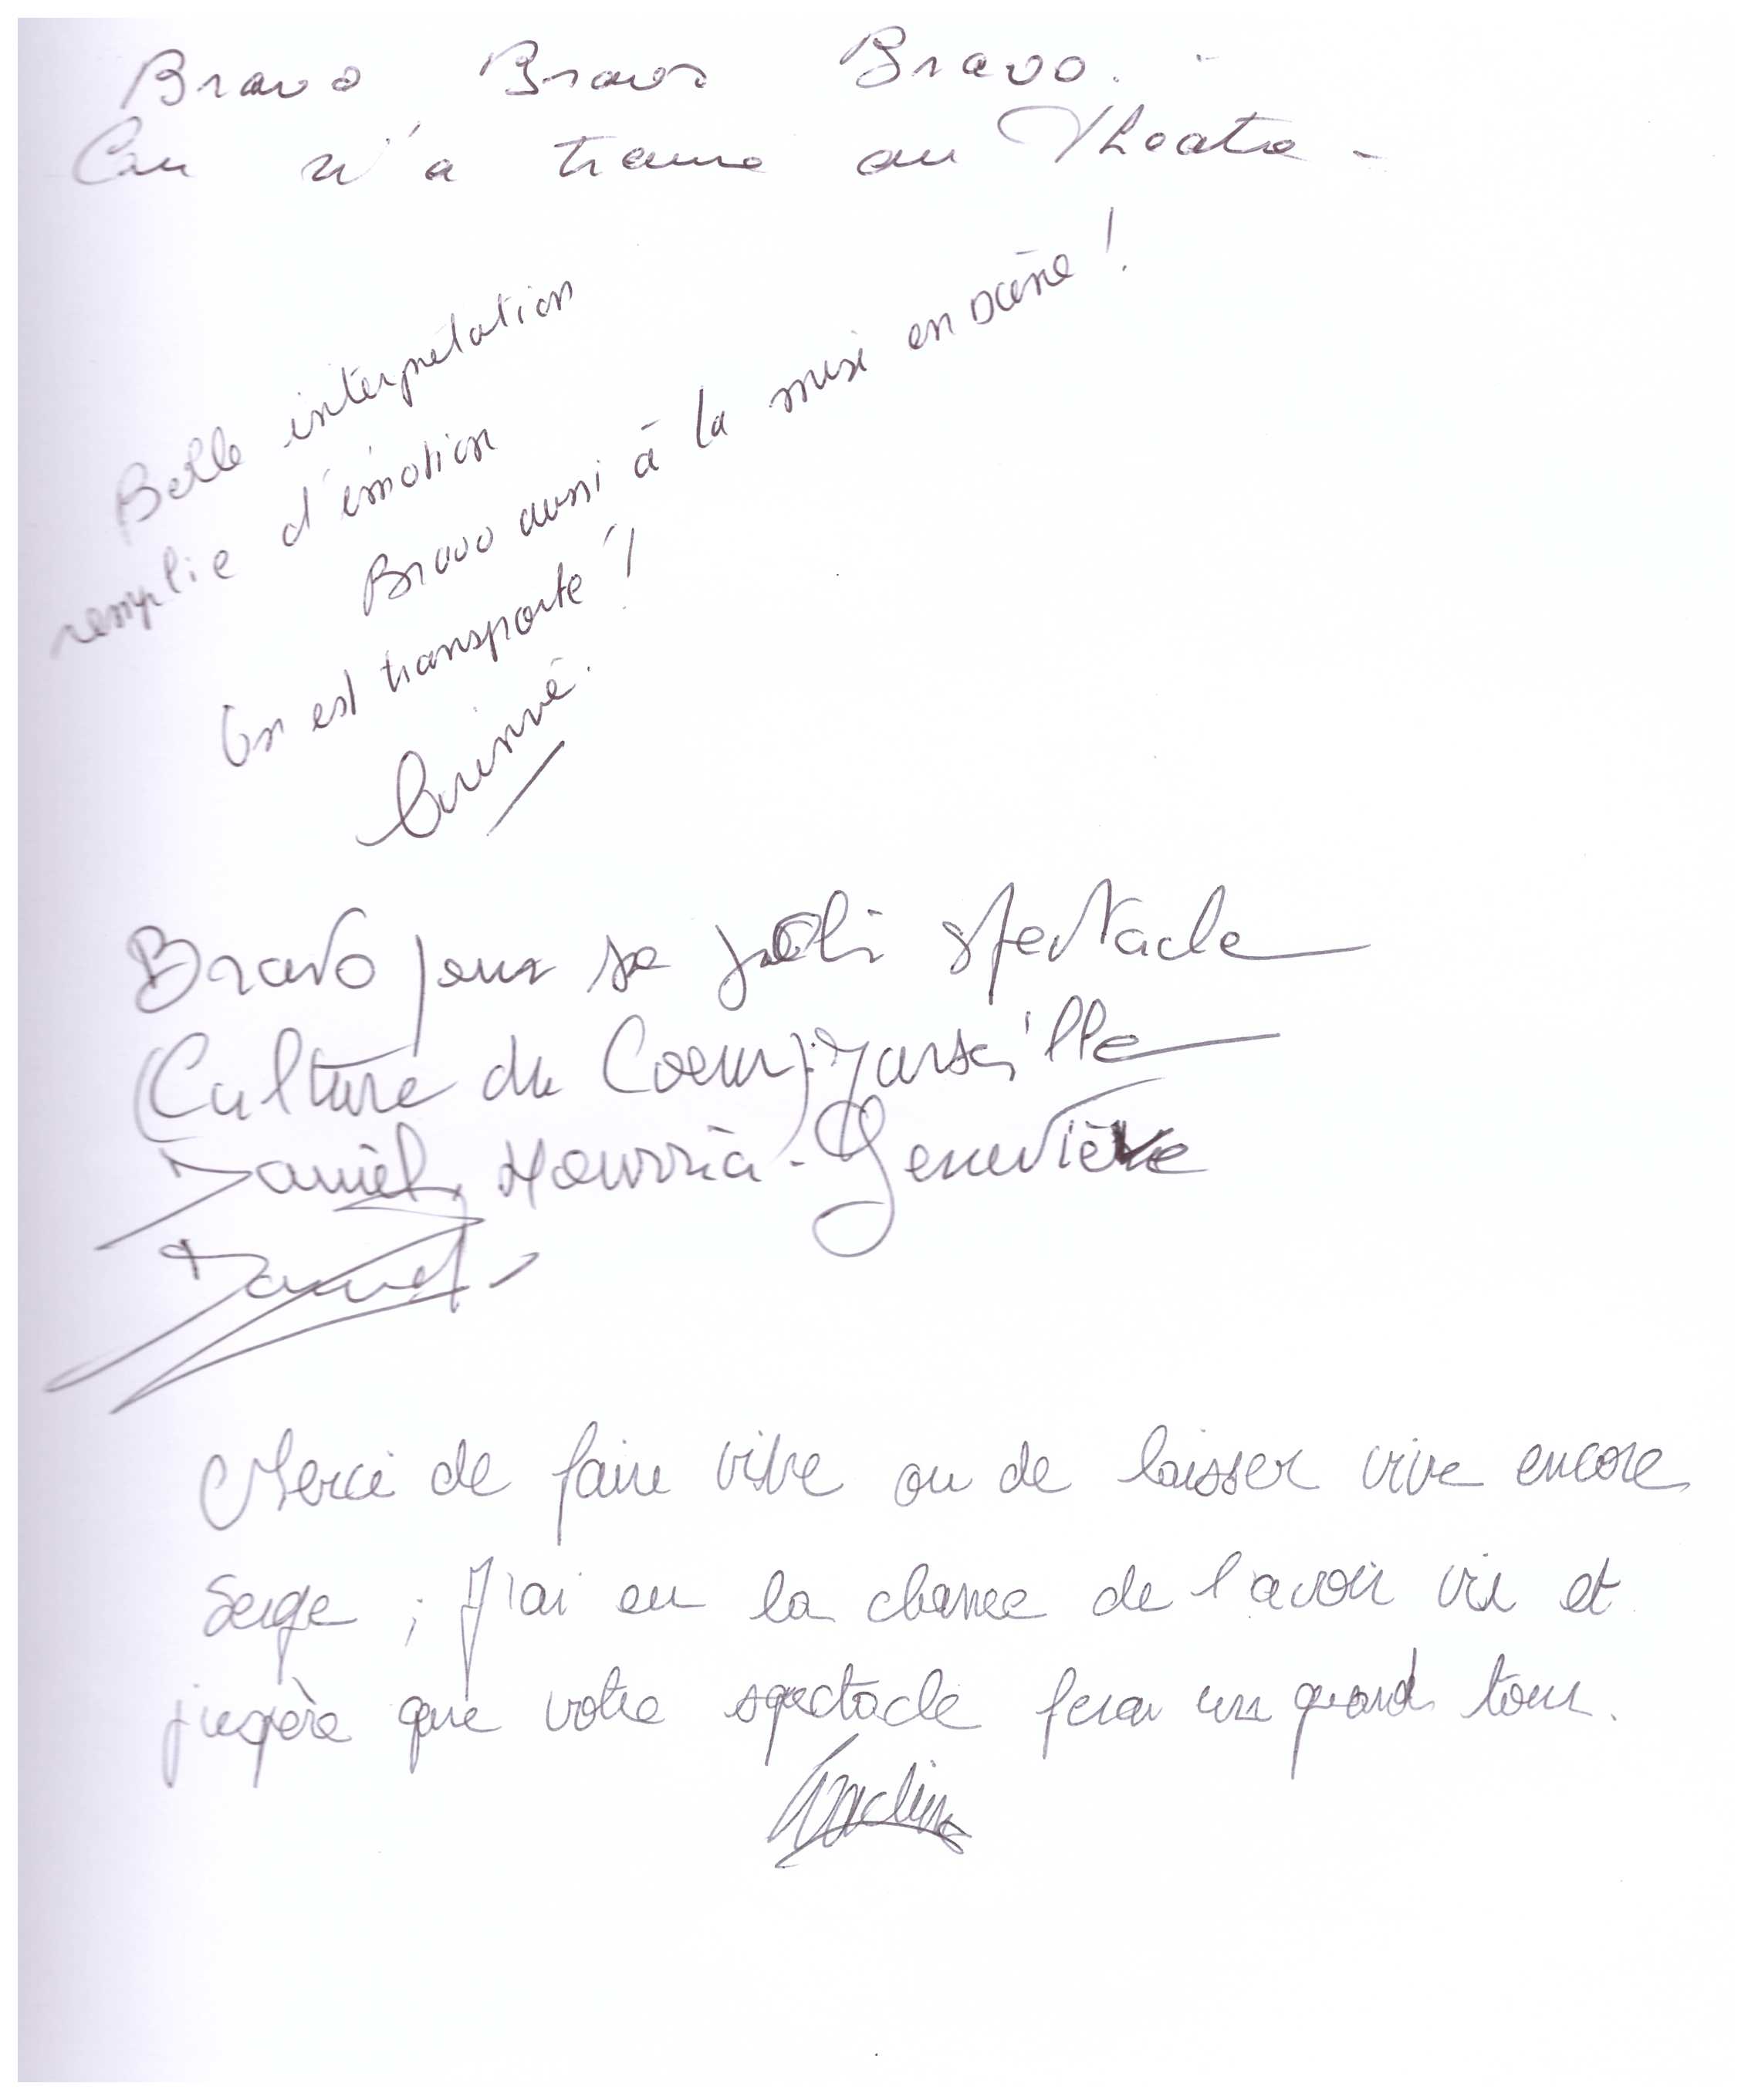 Bravo Bravo Bravo.
n'a au Theatre -
Belle interprétation
remplie d'émotion
Bravo aussi à la mise en scène !
On est transporté !
Corinne.
Bravo pour se joli spectacle
(Culture du Coeur) Marseille
Daniel, Hourria - Geneviève
Daniel
Merci de faire vivre ou de laisser vivre encore
Serge ; J'ai eu la chance de l'avoir vu et
j'espère que votre spectacle fera un grand tour.